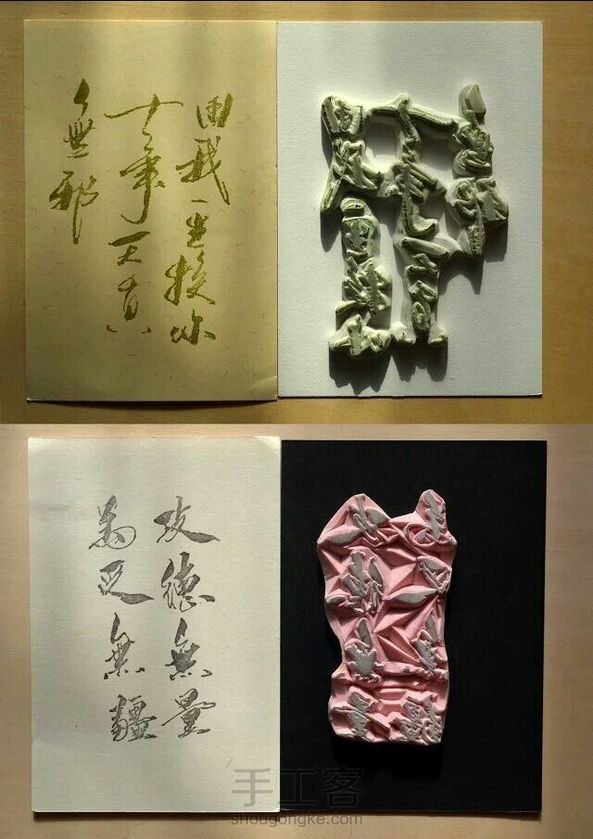 由我一生換你
十年天真
無邪
攻德無量
萬受無疆
手工客
shougongke.com